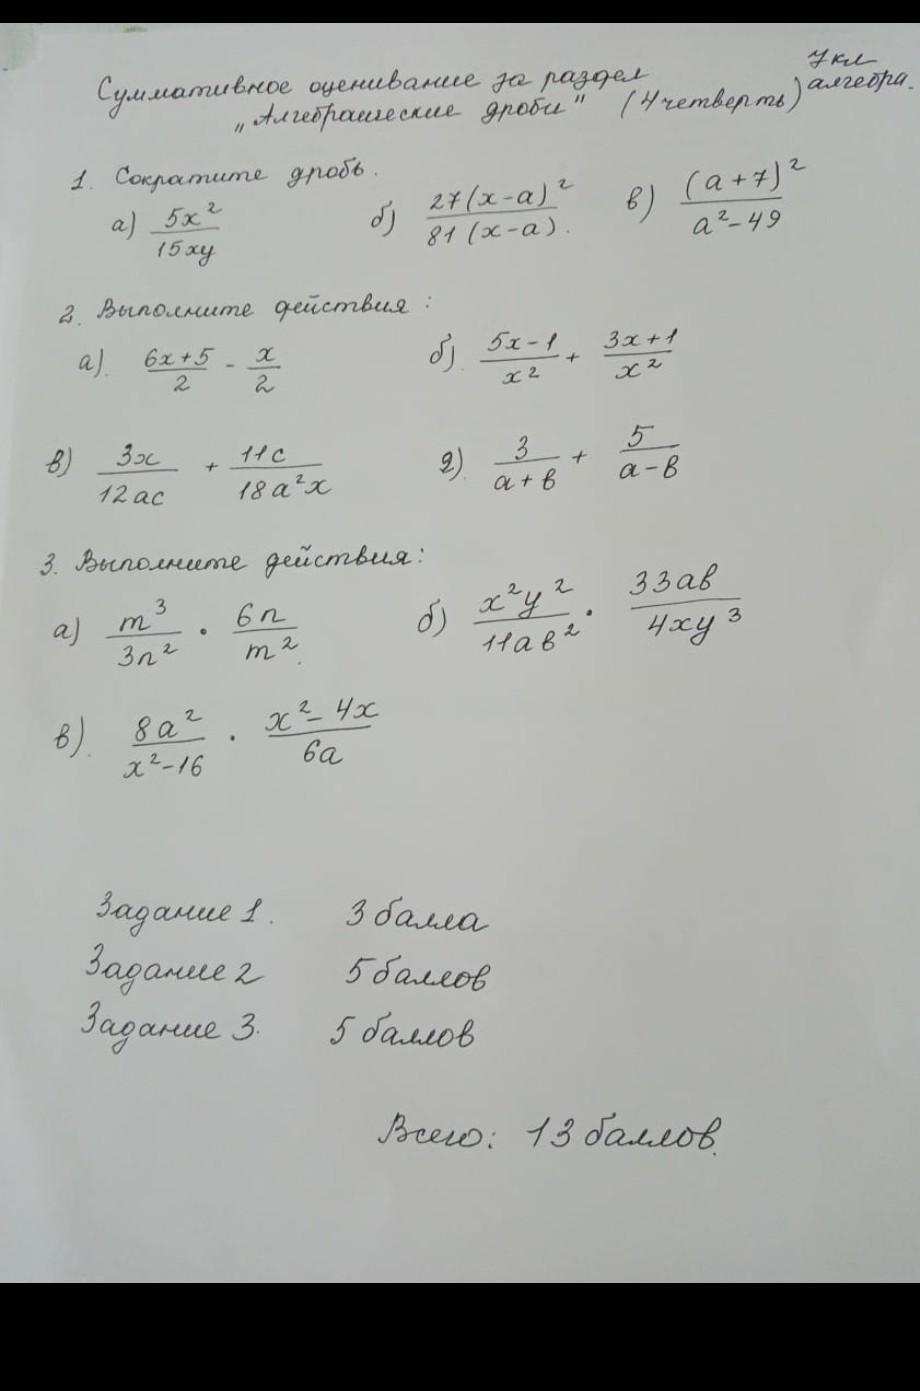 7 кл
алгебра.
Суммативное оценивание за раздел
„Алгебраические дроби" (4 четверть)
1. Сократите дробь.
а) 5x²/15xy б) 27(x-a)²/81(x-a). в) (a+7)²/a²-49
2. Выполните действия:
а). 6x+5/2 - x/2 б). 5x-1/x² + 3x+1/x²
в) 3x/12ac + 11c/18a²x г). 3/a+b + 5/a-b
3. Выполните действия:
а) m³/3n² · 6n/m². б) x²y²/11ab² · 33ab/4xy³
в). 8a²/x²-16 · x²-4x/6a
Задание 1. 3 балла
Задание 2 5 баллов
Задание 3. 5 баллов
Всего: 13 баллов.